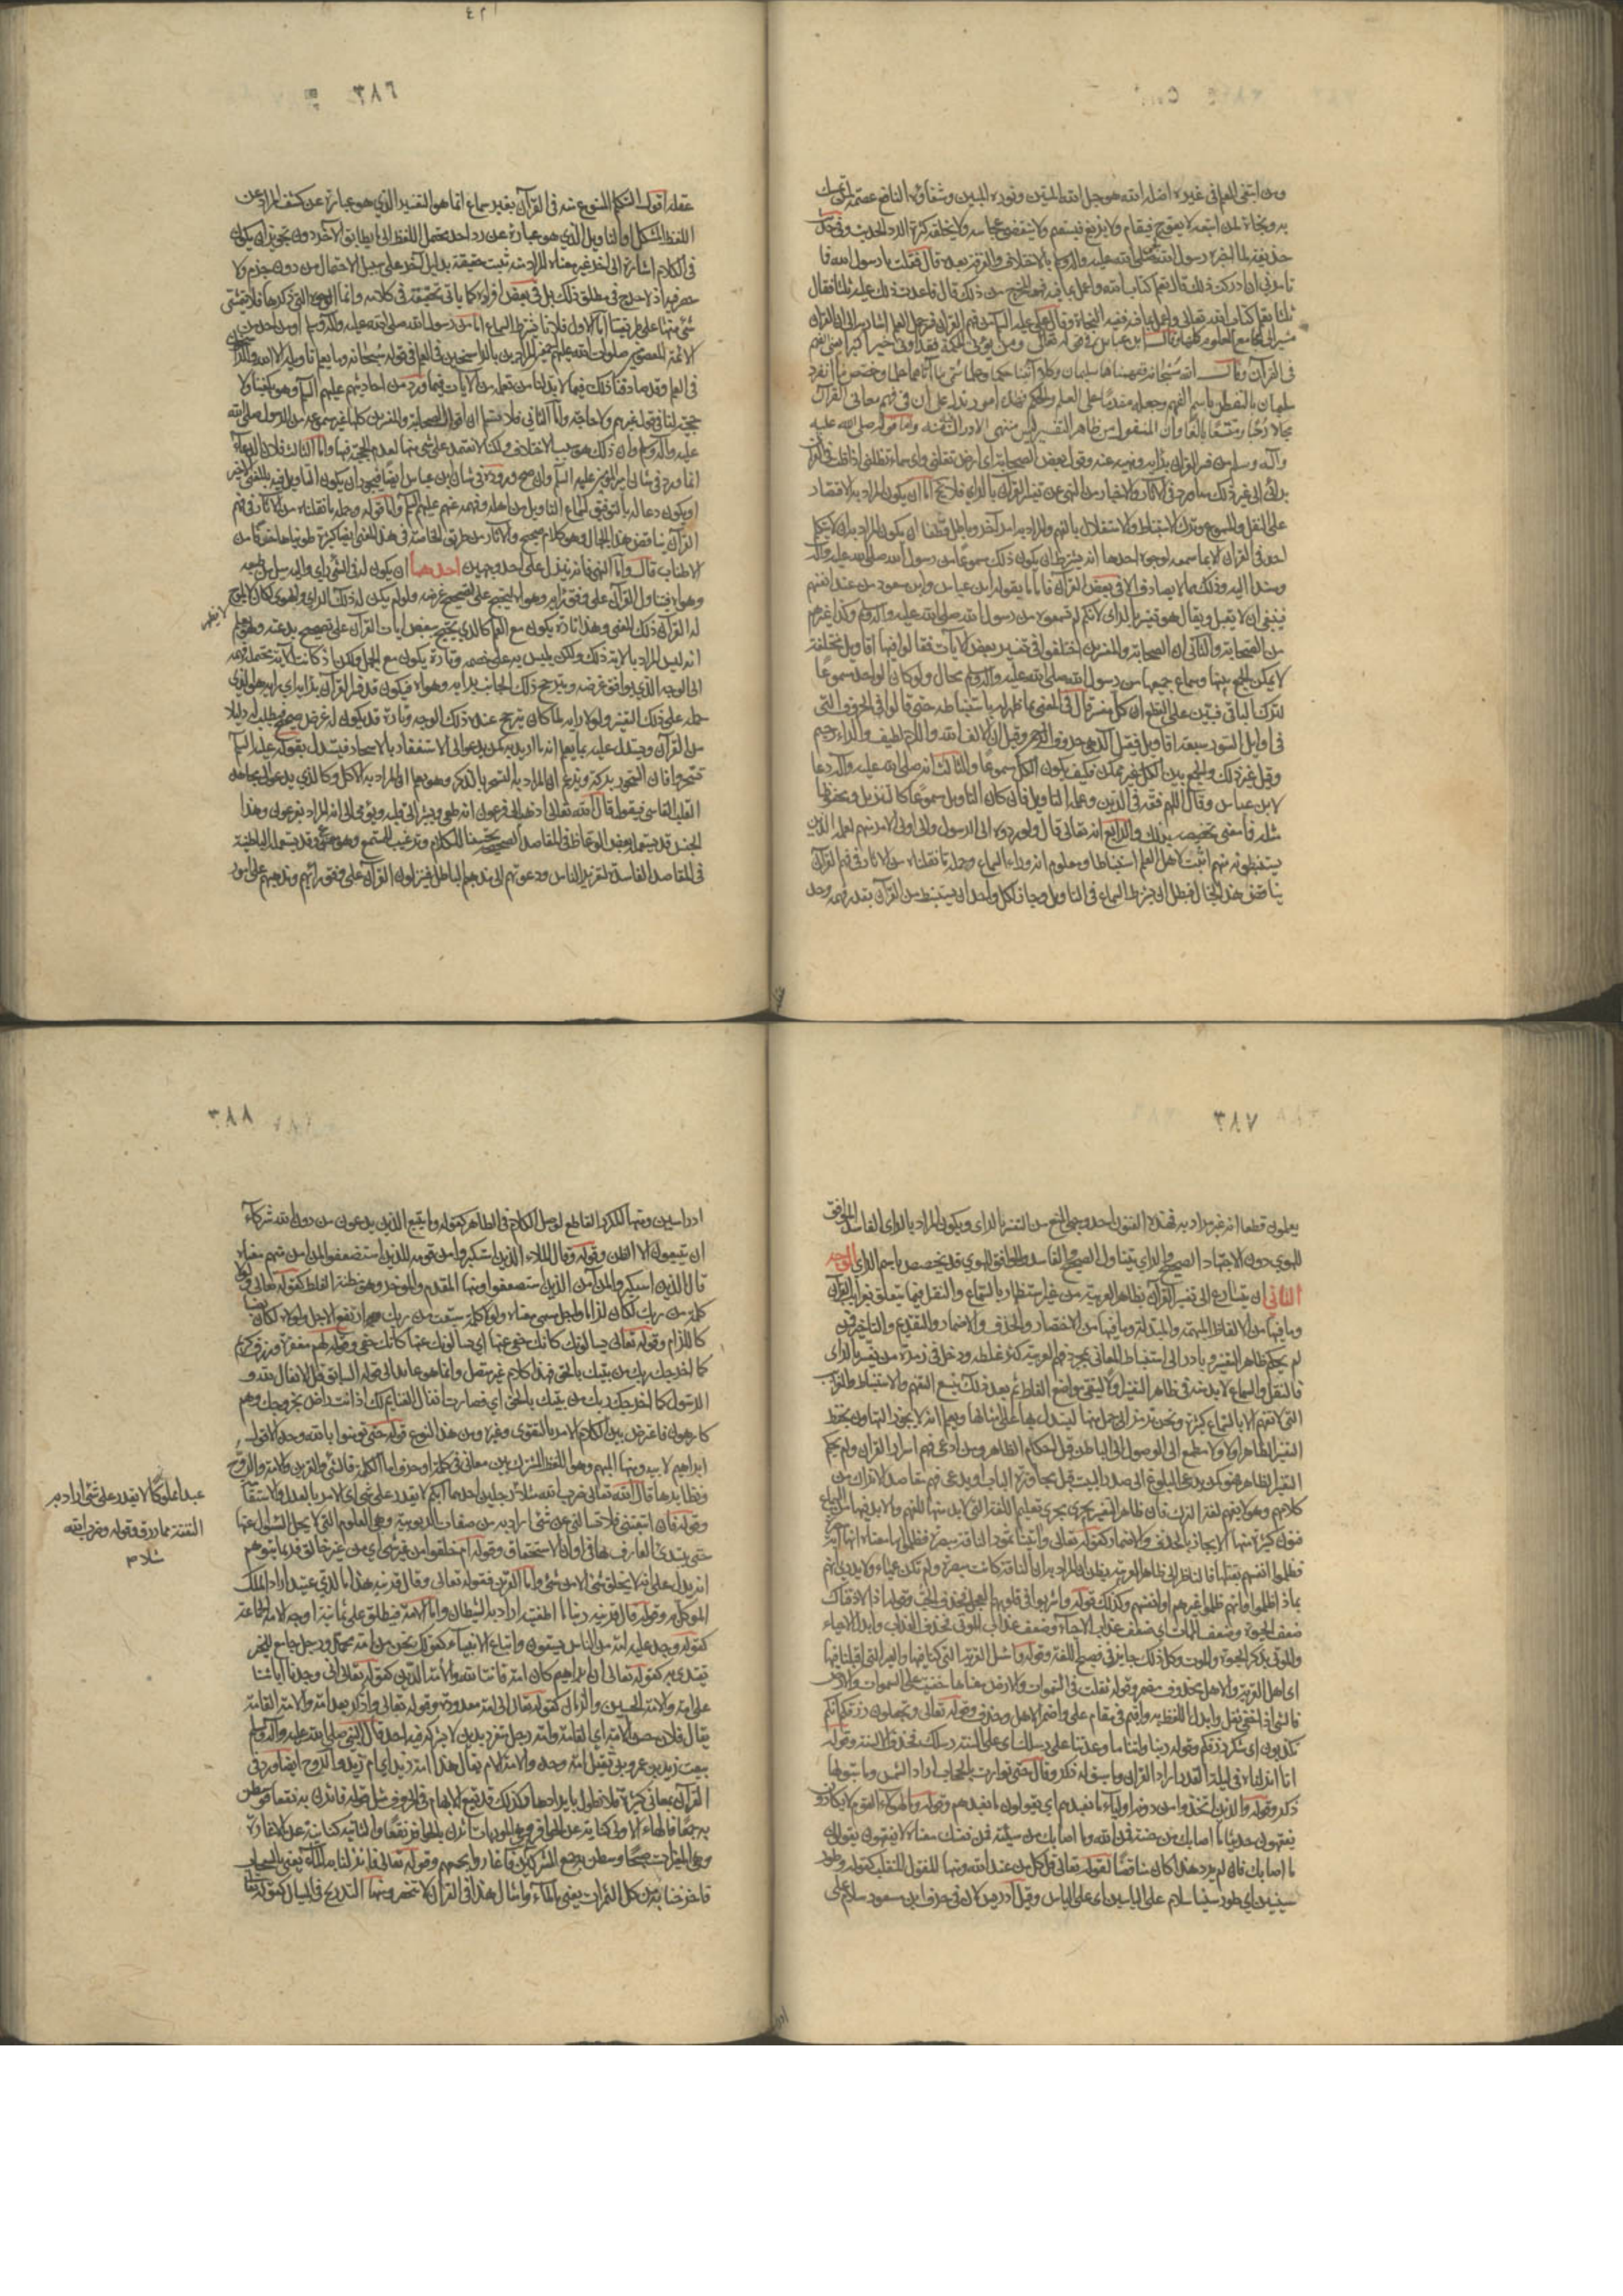 ومن ابتغى العلم في غيره اضله الله هو حبل الله المتين ونوره المبين وشفاؤه النافع عصمة لمن تمسك
به ونجاة لمن اتبعه لا يعوج فيقام ولا يزيغ فيستعتب ولا ينقضي عجائبه ولا يخلقه كثرة الرد الحديث وفي حديث
حذيفة لما اخبره رسول الله صلى الله عليه وآله بالاختلاف والفرقة بعده قال فقلت يا رسول الله فما
تأمرني ان ادركت ذلك قال تعلم كتاب الله واعمل بما فيه فهو المخرج من ذلك قال فاعدت ذلك عليه ثلثا فقال
ثلثا تعلم كتاب الله تعالى واعمل بما فيه ففيه النجاة وقال علي عليه السلام من فهم القرآن فسر جمل العلم اشار به الى ان القرآن
مشير الى مجامع العلوم كلها وقال ابن عباس في قوله تعالى ومن يؤتى الحكمة فقد اوتي خيرا كثيرا يعني الفهم
في القرآن وقال الله سبحانه ففهمناها سليمان وكلا آتينا حكما وعلما سمى ما آتاهما علما وخصص ما انفرد
سليمان بالتفطن باسم الفهم وجعله مقدما على العلم والحكم فهذه امور تدل على ان في فهم معاني القرآن
مجالا رحبا ومتسعا بالغا وان المنقول من ظاهر التفسير ليس منتهى الادراك فيه واما قوله صلى الله عليه
وآله وسلم من فسر القرآن برأيه ونهيه عنه وقول بعض الصحابة اي ارض تقلني واي سماء تظلني اذا قلت في القرآن
برأيي الى غير ذلك مما ورد في الآثار والاخبار من النهي عن تفسير القرآن بالراي فلا يخ اما ان يكون المراد به الاقتصار
على النقل والمسموع وترك الاستنباط والاستقلال بالفهم والمراد به امر آخر وباطل قطعا ان يكون المراد به ان لا يتكلم
احد في القرآن الا بما سمعه لوجوه احدها انه يشترط ان يكون ذلك مسموعا من رسول الله صلى الله عليه وآله
ومسندا اليه وذلك مما لا يصادف الا في بعض القرآن فاما ما يقوله ابن عباس وابن مسعود من عند انفسهم
فينبغي ان لا يقبل ويقال هو تفسير بالراي لانهم لم يسمعوه من رسول الله صلى الله عليه وآله وكذا غيرهم
من الصحابة والثاني ان الصحابة والمفسرين اختلفوا في تفسير بعض الآيات فقالوا فيها اقاويل مختلفة
لا يمكن الجمع بينها وسماع جميعها من رسول الله صلى الله عليه وآله محال ولو كان الواحد مسموعا
لترك الباقي فتبين على القطع ان كل مفسر قال في المعنى بما ظهر له باستنباطه حتى قالوا في الحروف التي
في اوايل السور سبعة اقاويل فقيل الر هي حروف من الرحمن وقيل ان الالف الله واللام لطيف والراء رحيم
وقيل غير ذلك والجمع بين الكل غير ممكن فكيف يكون الكل مسموعا والثالث انه صلى الله عليه وآله دعا
لابن عباس وقال اللهم فقهه في الدين وعلمه التاويل فان كان التاويل مسموعا كالتنزيل ومحفوظا
مثله فما معنى تخصيصه بذلك والرابع انه تعالى قال ولو ردوه الى الرسول والى اولي الامر منهم لعلمه الذين
يستنبطونه منهم اثبت لاهل العلم استنباطا ومعلوم انه وراء السماع وجملة ما نقلناه من الآثار في فهم القرآن
يناقض هذا الخيال فبطل ان يشترط السماع في التاويل وجاز لكل واحد ان يستنبط من القرآن بقدر فهمه وحد
٣٨٦
عقله اقول التكلم الممنوع منه في القرآن بغير سماع انما هو التفسير الذي هو عبارة عن كشف المراد عن
اللفظ المشكل او التاويل الذي هو عبارة عن رد احد محتمل اللفظ الى ما يطابق الآخر دون تجويز ان يكون
في الكلام اشارة الى آخر غير معناه المراد منه تثبت حقيقته بدليل آخر على سبيل الاحتمال من دون جزم ولا
حصر فيه اذ لا حرج في مطلق ذلك بل في بعض افراده كما ياتي تحقيقه في كلامه وانما الوجوه التي ذكرها فلا يتمشى
شئ منها على طريقتنا اما الاول فلانا نشترط السماع اما من رسول الله صلى الله عليه وآله او من احد من
الائمة المعصومين صلوات الله عليهم خير المرادين بالراسخين في العلم في قوله سبحانه وما يعلم تاويله الا الله والراسخون
في العلم وقد صادفنا ذلك فيما لابد لنا من تعلمه من الآيات فيما ورد من احاديثهم عليهم السلام وهو يكفينا ولا
حجة لنا في قول غيرهم ولا حاجة واما الثاني فلا نسلم ان اقوال الصحابة والمفسرين كلها غير مسموعة من الرسول صلى الله
عليه وآله وان ذلك هو سبب الاختلاف ولكنا لا نعتمد على شئ منها لعدم الحجة فيها واما الثالث فلان الدعاء
انما ورد في شان امير المؤمنين عليه السلام وان صح وروده في شان ابن عباس ايضا فيجوز ان يكون التاويل فيه بالمعنى الاخير
او يكون دعا له بالتوفيق لسماع التاويل من اهله وفهمه عنهم عليهم السلام واما قوله وجملة ما نقلناه من الآثار في فهم
القرآن يناقض هذا الخيال فهو كلام صحيح والآثار من طريق الخاصة في هذا المعنى ايضا كثيرة طويناها خوفا من
الاطناب قال واما النهي فانه ينزل على احد وجهين احدهما ان يكون له في الشئ راي واليه ميل من طبعه
وهواه فيتاول القرآن على وفق رأيه وهواه ليحتج على تصحيح غرضه ولو لم يكن له ذلك الراي والهوى لكان لا يلوح
لا يظهر
له من القرآن ذلك المعنى وهذا تارة يكون مع العلم كالذي يحتج ببعض آيات القرآن على تصحيح بدعته وهو يعلم
انه ليس المراد بالآية ذلك ولكن يلبس به على خصمه وتارة يكون مع الجهل ولكن اذ كانت الآية محتملة فهمه
الى الوجه الذي يوافق غرضه ويترجح ذلك الجانب برأيه وهواه فيكون قد فسر القرآن برأيه اي رايه هو الذي
حمله على ذلك التفسير ولولا رايه لما كان يترجح عنده ذلك الوجه وتارة قد يكون له غرض صحيح فيطلب له دليلا
من القرآن ويستدل عليه بما يعلم انه ما اريد به كمن يدعو الى الاستغفار بالاسحار فيستدل بقوله عليه السلام
تسحروا فان السحور بركة ويزعم ان المراد به التسحر بالذكر وهو يعلم ان المراد به الاكل وكالذي يدعو الى مجاهدة
القلب القاسي فيقول قال الله تعالى اذهب الى فرعون انه طغى ويشير الى قلبه ويومي الى انه المراد بفرعون وهذا
الجنس قد يستعمله بعض الوعاظ في المقاصد الصحيحة تحسينا للكلام وترغيبا للمستمع وهو ممنوع وقد يستعمله الباطنية
في المقاصد الفاسدة لتغرير الناس ودعوتهم الى مذهبهم الباطل فينزلون القرآن على وفق رأيهم ومذهبهم على امور
٣٨٧
يعلمون قطعا انه غير مراد به فهذه الفنون احد وجهي المنع من التفسير بالراي ويكون المراد بالراي الفاسد الموافق
للهوى دون الاجتهاد الصحيح والراي يتناول الصحيح والفاسد والموافق للهوى قد يخصص باسم الراي الوجه
الثاني ان يتسارع الى تفسير القرآن بظاهر العربية من غير استظهار بالسماع والنقل فيما يتعلق بغرائب القرآن
وما فيها من الالفاظ المبهمة والمبدلة وما فيها من الاختصار والحذف والاضمار والتقديم والتاخير فمن
لم يحكم ظاهر التفسير وبادر الى استنباط المعاني بمجرد فهم العربية كثر غلطه ودخل في زمرة من يفسر بالراي
فالنقل والسماع لابد منه في ظاهر التفسير اولا ليتقي مواضع الغلط ثم بعد ذلك يتسع التفهم والاستنباط والغرائب
التي لا تفهم الا بالسماع كثيرة ونحن نرمز الى جمل منها ليستدل بها على امثالها ويعلم انه لا يجوز التهاون بحفظ
التفسير الظاهر اولا ولا مطمع الى الوصول الى الباطن قبل احكام الظاهر ومن ادعى فهم اسرار القرآن ولم يحكم
التفسير الظاهر فهو كمن يدعي البلوغ الى صدر البيت قبل مجاوزة الباب او يدعي فهم مقاصد الاتراك من
كلامهم وهو لا يفهم لغة الترك فان ظاهر التفسير يجري مجرى تعليم اللغة التي لابد منها للفهم وما لابد فيها من السماع
فنون كثيرة منها الايجاز بالحذف والاضمار كقوله تعالى وآتينا ثمود الناقة مبصرة فظلموا بها معناه آية مبصرة
فظلموا انفسهم بقتلها فالناظر الى ظاهر العربية يظن ان المراد به ان الناقة كانت مبصرة ولم تكن عمياء ولا يدري انهم
بماذا ظلموا وانهم ظلموا غيرهم او انفسهم وكذلك قوله واشربوا في قلوبهم العجل اي حب العجل وقوله اذا لاذقناك
ضعف الحيوة وضعف الممات اي ضعف عذاب الاحياء وضعف عذاب الموتى فحذف العذاب وابدل الاحياء
والموتى بذكر الحيوة والموت وكل ذلك جايز في فصيح اللغة وقوله واسئل القرية التي كنا فيها والعير التي اقبلنا فيها
اي اهل القرية والاهل محذوف مضمر وقوله ثقلت في السموات والارض معناها خفيت على السموات والارض
فالشئ اذا خفي ثقل وابدل اللفظ به واقيم في مقام على واضمر الاهل وحذف وقوله تعالى وتجعلون رزقكم انكم
تكذبون اي شكر رزقكم وقوله ربنا وآتنا ما وعدتنا على رسلك اي على السنة رسلك فحذف الالسنة وقوله
انا انزلناه في ليلة القدر اراد القرآن وما سبق له ذكر وقال حتى توارت بالحجاب اراد الشمس وما سبق لها
ذكر وقوله والذين اتخذوا من دونه اولياء ما نعبدهم اي يقولون ما نعبدهم وقوله فما لهؤلاء القوم لا يكادون
يفقهون حديثا ما اصابك من حسنة فمن الله وما اصابك من سيئة فمن نفسك معناه لا يفقهون يقولون
ما اصابك فان لم يرد هذا كان مناقضا لقوله تعالى قل كل من عند الله ومنها المنقول المنقلب كقوله وطور
سينين اي طور سينا سلام على الياسين اي على الياس وقيل ادريس لان في حرف ابن مسعود سلام على
٣٨٨
ادراسين ومنها المكرر القاطع لوصل الكلام في الظاهر كقوله وما يتبع الذين يدعون من دون الله شركاء
ان يتبعون الا الظن وقوله وقال الملاء الذين استكبروا من قومه للذين استضعفوا لمن آمن منهم معناه
قال الذين استكبروا لمن آمن من الذين استضعفوا ومنها المقدم والموخر وهو مظنة الغلط كقوله تعالى ولولا
كلمة سبقت من ربك لكان لزاما واجل مسمى معناه ولولا كلمة سبقت من ربك واجل مسمى لكان لزاما وبه ارتفع الاجل ولولاه لكان نصبا
كاللزام وقوله تعالى يسالونك كانك حفي عنها اي يسالونك عنها كانك حفي وقوله لهم مغفرة ورزق كريم
كما اخرجك ربك من بيتك بالحق فهذا كلام غير متصل وانما هو عايد الى قوله السابق قل الانفال لله و
الرسول كما اخرجك ربك من بيتك بالحق اي فصارت انفال الغنايم لك اذ انت راض بخروجك وهم
كارهون فاعترض بين الكلام الامر بالتقوى وغيره ومن هذا النوع قوله حتى تؤمنوا بالله وحده الا قول
ابراهيم لابيه ومنها المبهم وهو اللفظ المشترك بين معان في كلمة او حرف اما الكلمة فالشئ والقرين والامة والروح
ونظايرها قال الله تعالى ضرب الله مثلا رجلين احدهما ابكم لا يقدر على شئ اي الامر بالعدل والاستقامة
عبدا مملوكا لا يقدر على شئ اراد به
النفقة مما رزق وقوله وضرب الله
مثلا م
وقوله فان اتبعتني فلا تسالني عن شئ اراد به من صفات الربوبية وهي العلوم التي لا يحل السؤال عنها
حتى يبتدئ العارف بها في اوان الاستحقاق وقوله ام خلقوا من غير شئ اي من غير خالق فربما يتوهم
انه يدل على انه لا يخلق شئ الا من شئ واما القرين فقوله تعالى وقال قرينه هذا ما لدي عتيد اراد الملك
الموكل به وقوله قال قرينه ربنا ما اطغيته اراد به الشيطان واما الامة فيطلق على ثمانية اوجه الامة الجماعة
كقوله وجد عليه امة من الناس يسقون واتباع الانبياء كقولك نحن من امة محمد ورجل جامع للخير
يقتدى به كقوله تعالى ان ابراهيم كان امة قانتا لله والامة الدين كقوله تعالى انا وجدنا آباءنا
على امة والامة الحين والزمان كقوله تعالى الى امة معدودة وقوله تعالى وادكر بعد امة والامة القامة
يقال فلان حسن الامة اي القامة وامة رجل متفرد بدين لا يشركه فيه احد قال النبي صلى الله عليه وآله
يبعث زيد بن عمرو بن نفيل امة وحده والامة الام يقال هذه امة زيد اي ام زيد والروح ايضا ورد في
القرآن بمعاني كثيرة فلا نطول بايرادها وكذلك قد يقع الابهام في الحروف مثل قوله فاثرن به نقعا فوسطن
به جمعا فالهاء الاولى كناية عن الحوافر وهي الموريات اثرن بالحوافر نقعا والثانية كناية عن الاغارة
وهي المغيرات صبحا وسطن به جمع المشركين فاغاروا بجمعهم وقوله تعالى فانزلنا به الماء يعني بالسحاب
فاخرجنا به من كل الثمرات يعني بالماء وامثال هذا في القرآن لا تنحصر ومنها التدريج في البيان كقوله تعالى